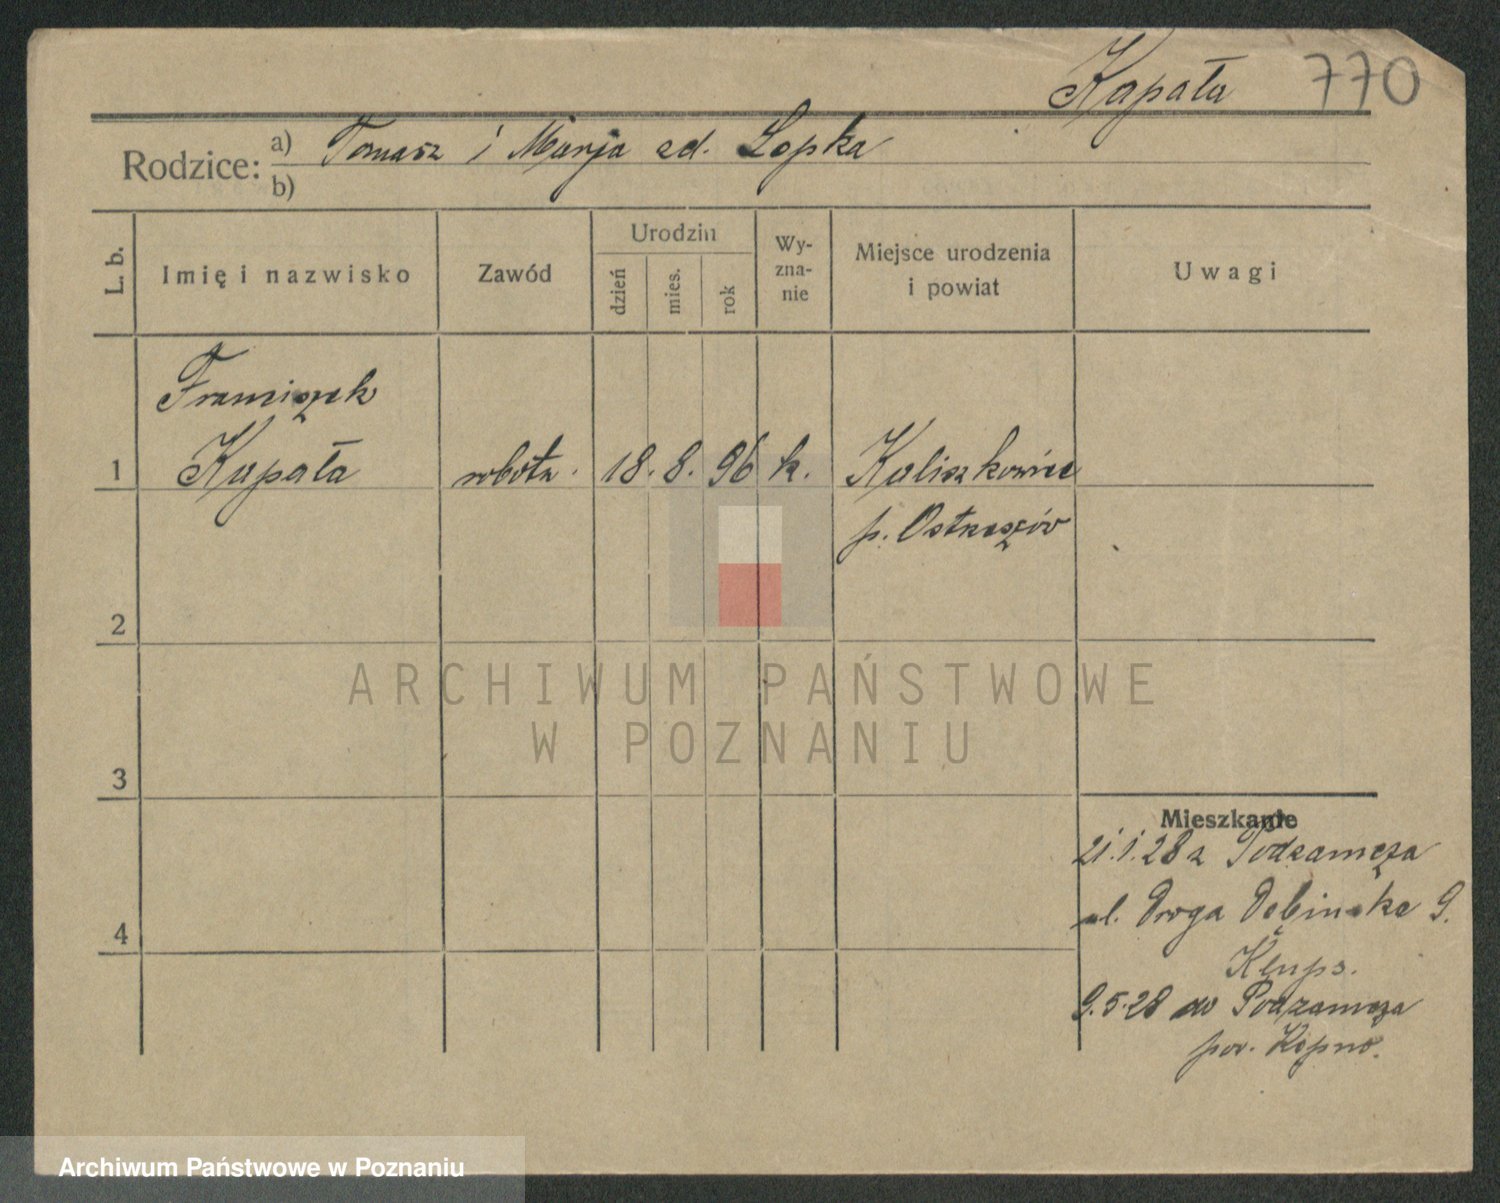 Kapała 770
Rodzice: a) Tomasz i Marja zd. Lopka
b)
L. b.
Imię i nazwisko
Zawód
Urodzin
dzień
mies.
rok
Wy-
zna-
nie
Miejsce urodzenia
i powiat
Uwagi
Franciszek
1 Kapała robotn. 18. 8. 96 k. Kaliszkowice
p. Ostrzeszów
2
ARCHIWUM PAŃSTWOWE
W POZNANIU
3
Mieszkanie
21.1.28 z Podzamcza
ul. Droga Dębińska 9.
4
9.5.28 do Podzamcza
pow. Kępno.
Archiwum Państwowe w Poznaniu